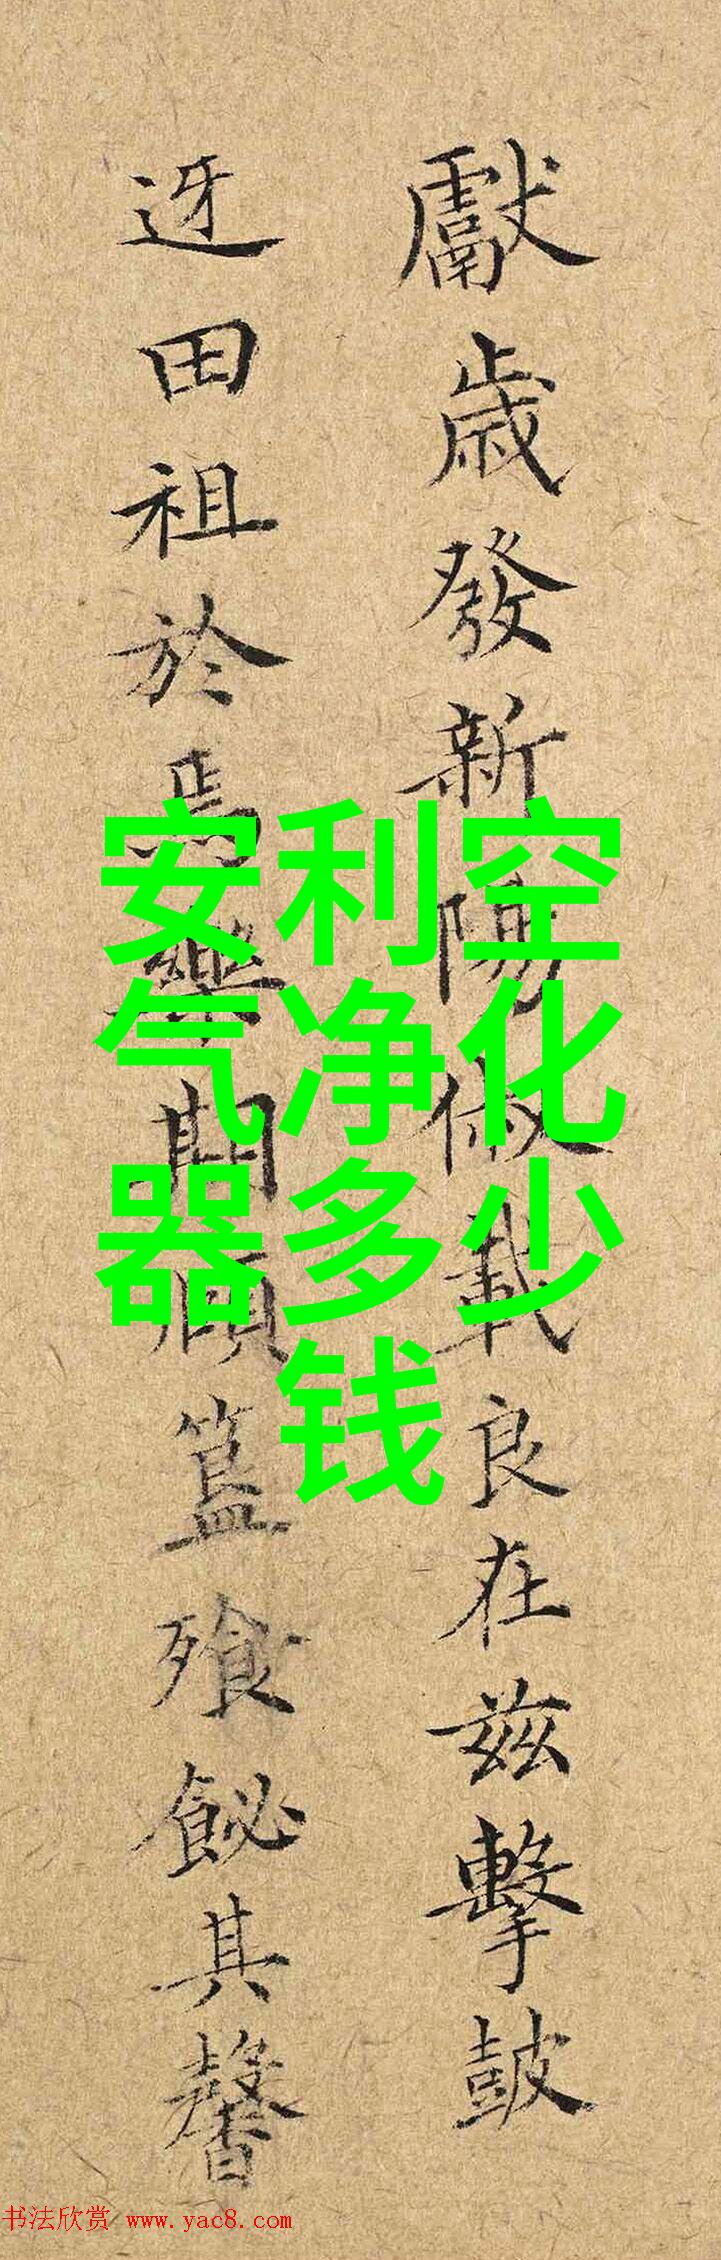 獻歲發新陽俶載良在茲擊鼓
迓田祖於焉樂簋飱飶其馨
安利空
气净化
器多少
钱
书法欣赏 www.yac8.com